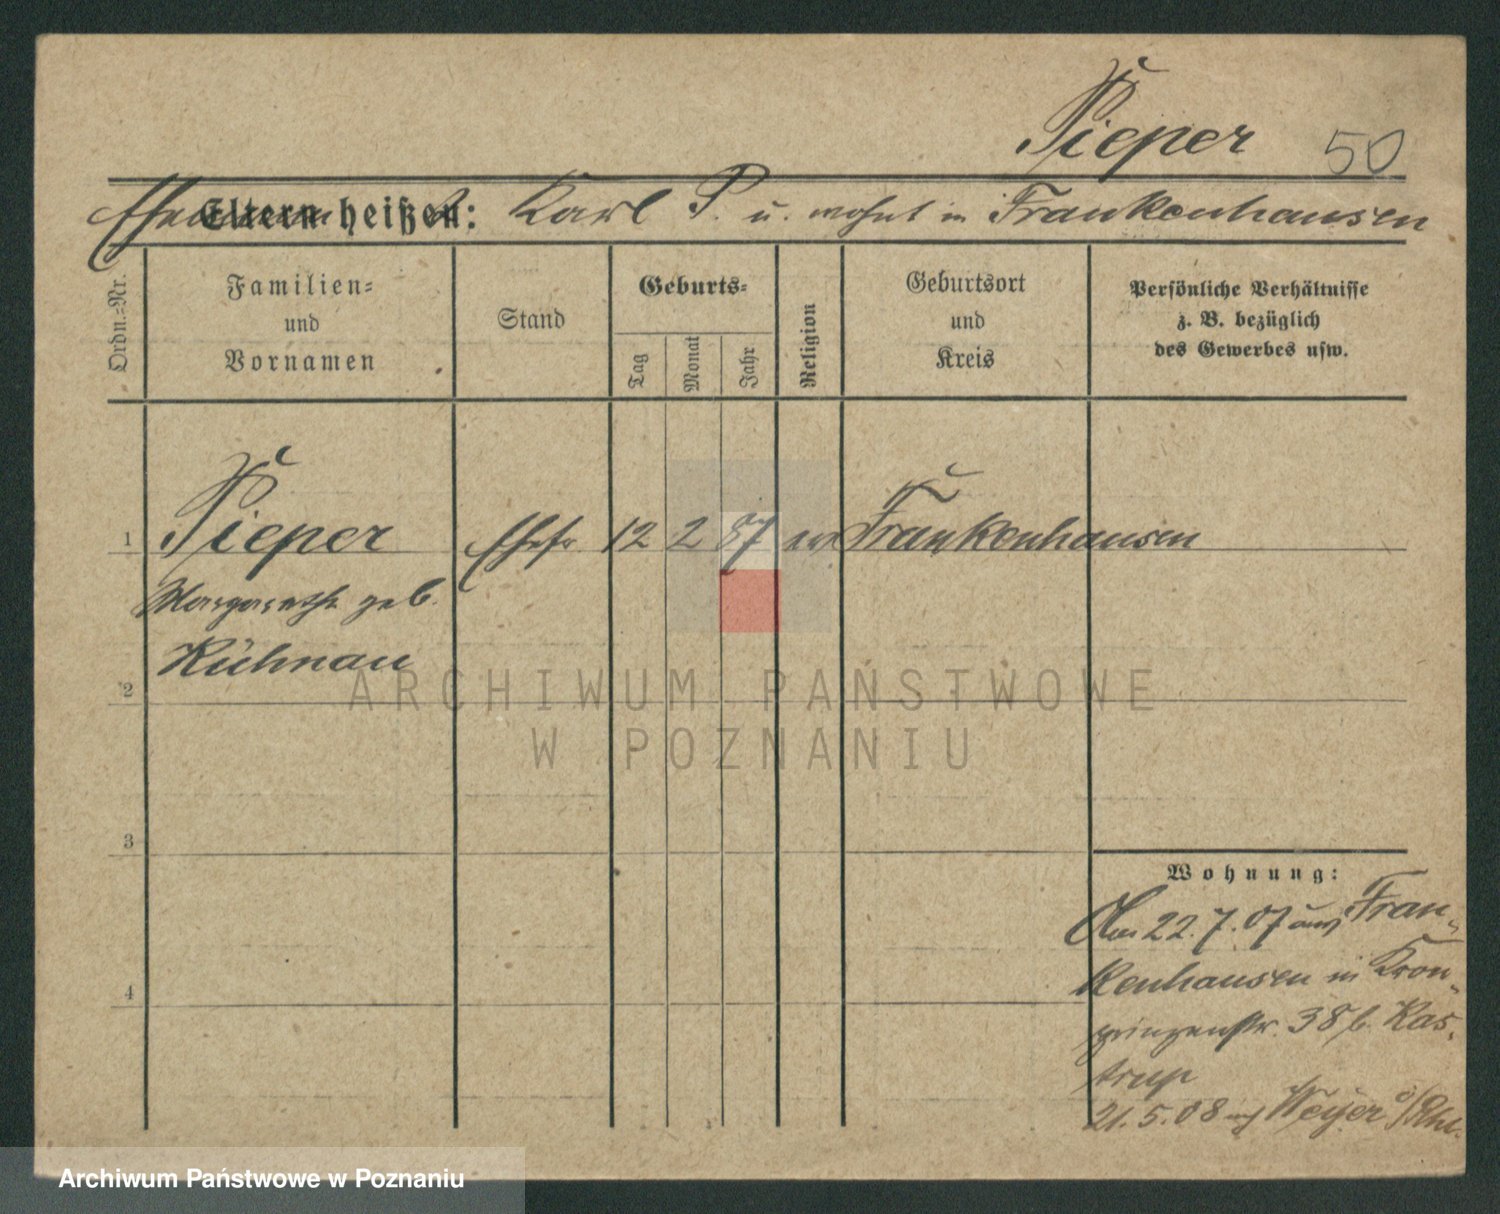 Pieper 50
Ehemann
Eltern heißen: Karl P. u. wohnt in Frankenhausen
Ordn.-Nr.
Familien-
und
Vornamen
Stand
Geburts-
Tag
Monat
Jahr
Religion
Geburtsort
und
Kreis
Persönliche Verhältnisse
z. B. bezüglich
des Gewerbes usw.
1 Pieper Ehefr 12 2 87 ev Frankenhausen
Margarethe geb.
Kühnau
2
ARCHIWUM PAŃSTWOWE
W POZNANIU
3
Wohnung:
22.7.07 aus Fran-
kenhausen in Kron-
4
prinzenstr. 38 b. Kas-
trup
21.5.08 nach Weyer
Archiwum Państwowe w Poznaniu